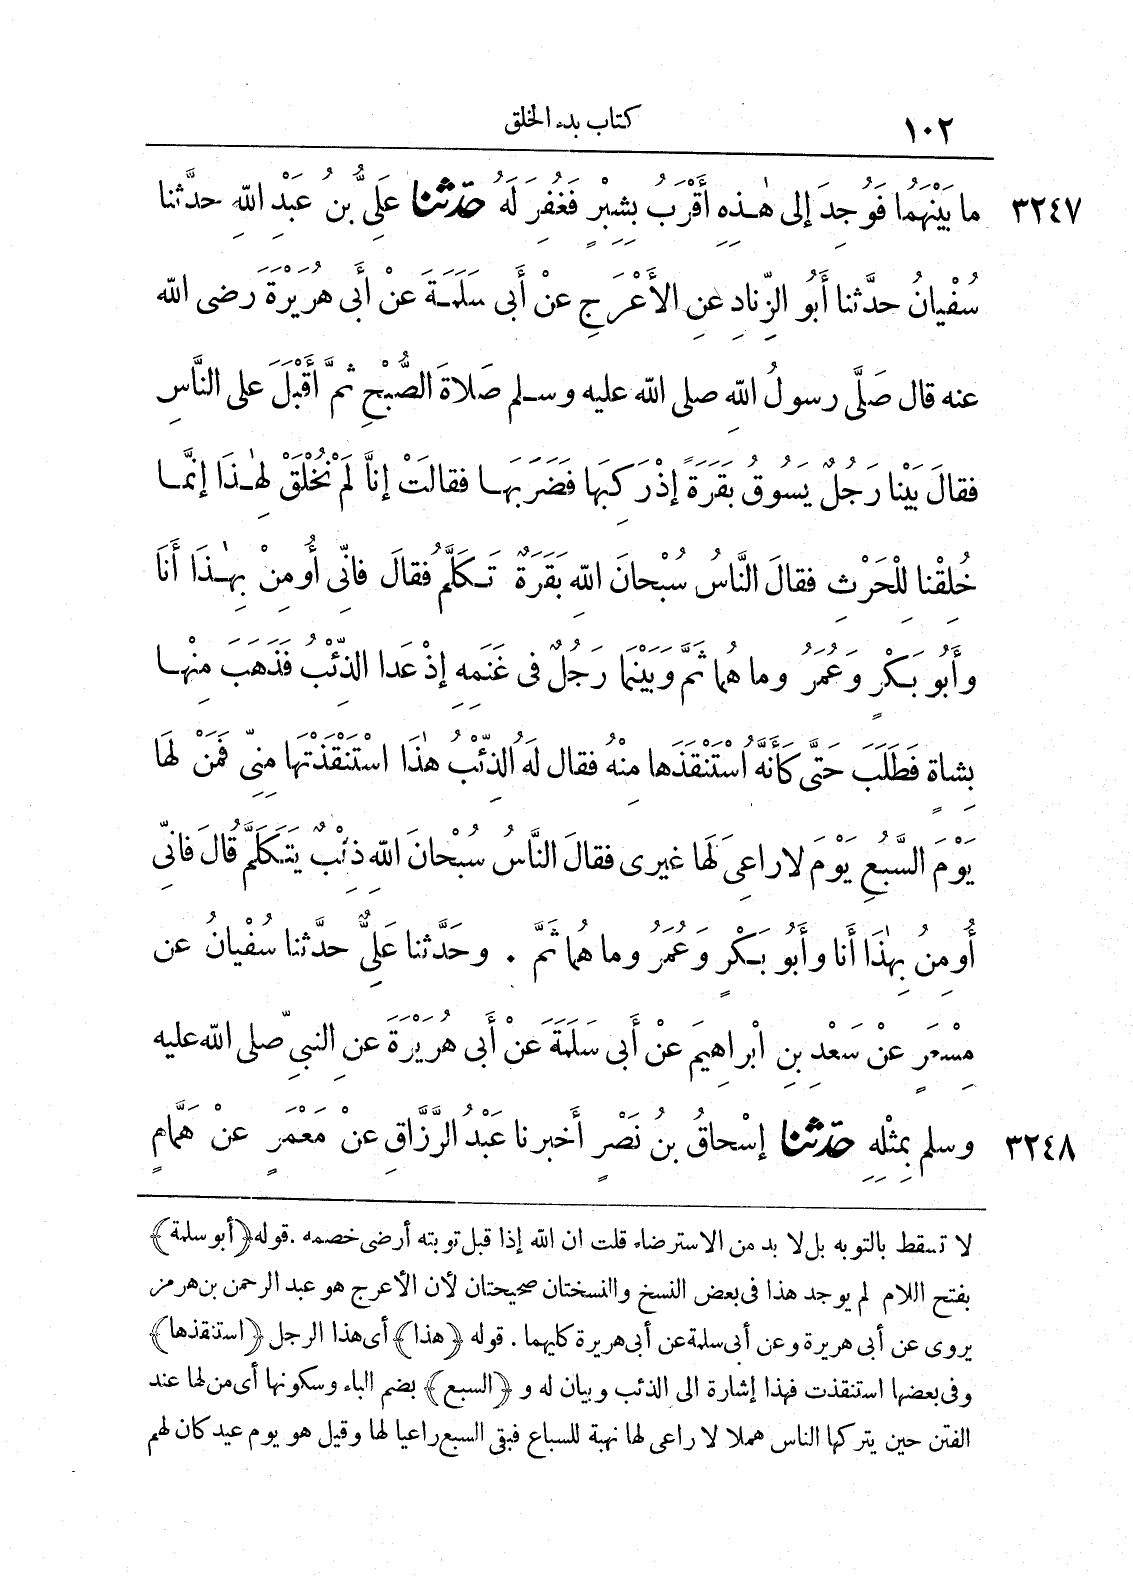 ١٠٢ كتاب بدء الخلق
٣٢٤٧ ما بَيْنَهُما فَوُجِدَ إلى هٰذِهِ أَقْرَبُ بِشِبْرٍ فَغُفِرَ لَهُ حَدّثنا عَلِىُّ بنُ عَبْدِ اللهِ حدَّثنا
سُفْيانُ حدَّثنا أَبُو الزِّنادِ عنِ الأَعْرَجِ عنْ أَبى سَلَمَةَ عنْ أَبى هُرَيْرَةَ رضى الله
عنه قال صَلَّى رسولُ اللهِ صلى الله عليه وسلم صَلاةَ الصُّبْحِ ثمَّ أَقْبَلَ على النَّاسِ
فقالَ بَيْنا رَجُلٌ يَسُوقُ بَقَرَةً إذْ رَكِبَها فَضَرَبَها فقالَتْ إنَّا لَمْ نُخْلَقْ لِهٰذَا إنَّما
خُلِقْنا لِلْحَرْثِ فقالَ النَّاسُ سُبْحانَ اللهِ بَقَرَةٌ تَكَلَّمُ فقالَ فانِّى أُومِنُ بِهٰذَا أَنَا
وأَبُو بَكْرٍ وَعُمَرُ وما هُما ثَمَّ وَبَيْنَما رَجُلٌ فى غَنَمِهِ إذْ عَدا الذِّئْبُ فَذَهَبَ مِنْها
بِشاةٍ فَطَلَبَ حَتَّى كَأَنَّهُ اسْتَنْقَذَها مِنْهُ فقال لَهُ الذِّئْبُ هٰذَا اسْتَنْقَذْتَها مِنِّى فَمَنْ لَها
يَوْمَ السَّبُعِ يَوْمَ لا راعِىَ لَها غيرى فقالَ النَّاسُ سُبْحانَ اللهِ ذِئْبٌ يَتَكَلَّمُ قالَ فانِّى
أُومِنُ بِهٰذَا أَنا وأَبُو بَكْرٍ وَعُمَرُ وما هُما ثَمَّ . وحَدَّثنا عَلِىٌّ حدَّثنا سُفْيانُ عن
مِسْعَرٍ عنْ سَعْدِ بنِ ابْراهِيمَ عنْ أَبى سَلَمَةَ عنْ أَبى هُرَيْرَةَ عنِ النبىِّ صلى الله عليه
٣٢٤٨ وسلم بِمِثْلِهِ حَدّثنا إسْحاقُ بنُ نَصْرٍ أَخبرنا عَبْدُ الرَّزَّاقِ عنْ مَعْمَرٍ عنْ هَمَّامٍ
لا تسقط بالتوبه بل لا بد من الاسترضاء قلت ان الله إذا قبل توبته أرضى خصمه . قوله ﴿أبو سلمة﴾
بفتح اللام لم يوجد هذا فى بعض النسخ والنسختان صحيحتان لأن الأعرج هو عبد الرحمن بن هرمز
يروى عن أبى هريرة وعن أبى سلمة عن أبى هريرة كليهما . قوله ﴿هذا﴾ أى هذا الرجل ﴿استنقذها﴾
وفى بعضها استنقذت فهذا إشارة الى الذئب وبيان له و ﴿السبع﴾ بضم الباء وسكونها أى من لها عند
الفتن حين يتركها الناس هملا لا راعى لها نهبة للسباع فبقى السبع راعيا لها وقيل هو يوم عيد كان لهم